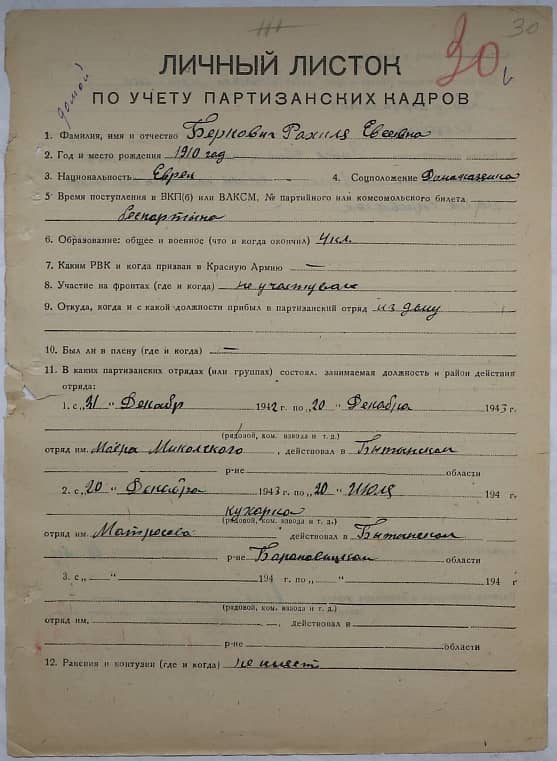 30
30
домой
ЛИЧНЫЙ ЛИСТОК
ПО УЧЕТУ ПАРТИЗАНСКИХ КАДРОВ
1. Фамилия, имя и отчество Беркович Рахиля Евсеевна
2. Год и место рождения 1910 год
3. Национальность Еврей 4. Соцположение Домохазяика
5 Время поступления в ВКП(б) или ВЛКСМ, № партийного или комсомольского билета
беспартийна
6. Образование: общее и военное (что и когда окончил) 4 кл.
7. Каким РВК и когда призван в Красную Армию —
8. Участие на фронтах (где и когда) не участувала
9. Откуда, когда и с какой должности прибыл в партизанский отряд из дому
10. Был ли в плену (где и когда) —
11. В каких партизанских отрядах (или группах) состоял, занимаемая должность и район действия
отряда:
1. с „31 " Декабр 1942 г. по „20 " Декабра 1943 г.
(рядовой, ком. взвода и т. д.)
отряд им. Маёра , действовал в Бытынском
р-не области
2. с „20 " Декабра 1943 г. по „20 " Июля 194 г.
кухарка
(рядовой, ком. взвода и т. д.)
отряд им. Матросова действовал в Бытынском
р-не Барановицкай области
3. с „ — " 194 г. по „ — " 194 г
(рядовой, ком. взвода и т. д.)
отряд им. , действовал в
р-не области
12. Ранения и контузии (где и когда) не имеет